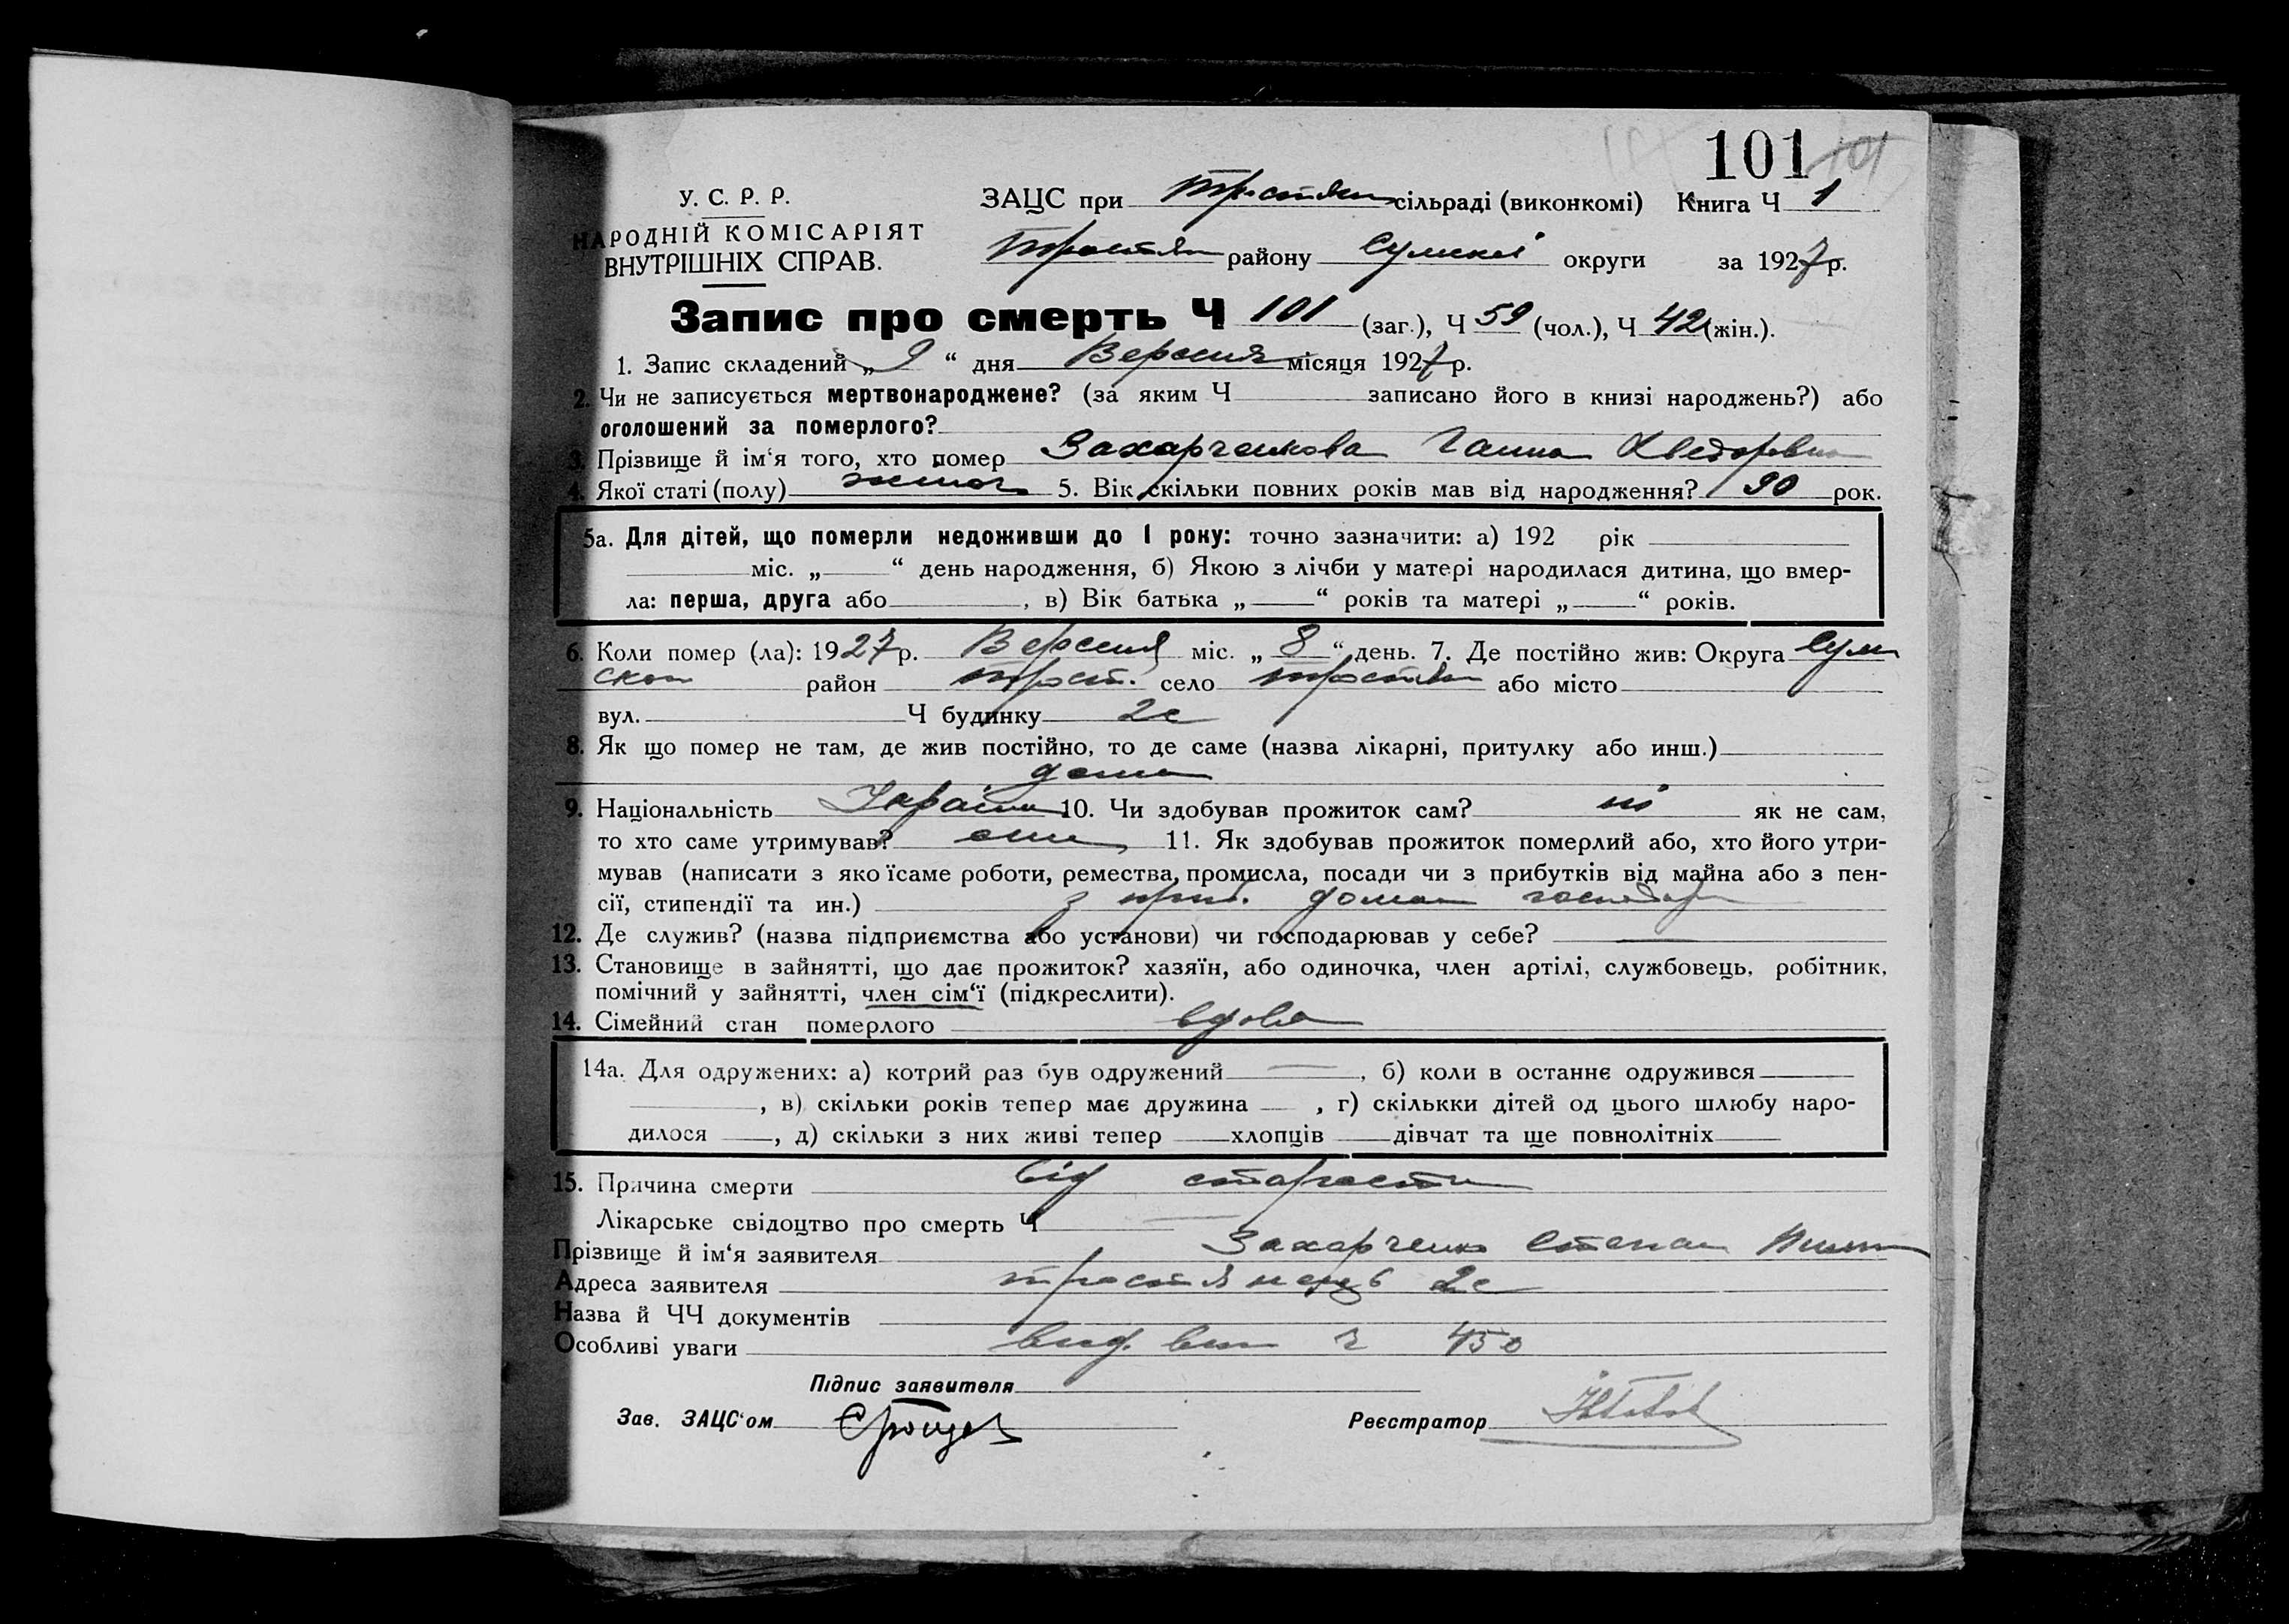 101 101
У. С. Р. Р.
НАРОДНІЙ КОМІСАРІЯТ
ВНУТРІШНІХ СПРАВ.
ЗАЦС при Тростян сільраді (виконкомі) Книга Ч 1
Тростян району Сумської округи за 1927 р.
Запис про смерть Ч 101 (заг.), Ч 59 (чол.), Ч 42 (жін.).
1. Запис складений „ 9 “ дня Вересня місяця 1927 р.
2. Чи не записується мертвонароджене? (за яким Ч записано його в книзі народжень?) або
оголошений за померлого?
3. Прізвище й ім‘я того, хто помер Захарченкова Ганна Хведоровна
4. Якої статі (полу) жіноч 5. Вік скільки повних років мав від народження? 90 рок.
5а. Для дітей, що померли недоживши до 1 року: точно зазначити: а) 192 рік
міс. „ “ день народження, б) Якою з лічби у матері народилася дитина, що вмер-
ла: перша, друга або , в) Вік батька „ “ років та матері „ “ років.
6. Коли помер (ла): 1927 р. Вересня міс. „ 8 “ день. 7. Де постійно жив: Округа Сум
ская район Трост. село Тростян або місто
вул. Ч будинку 2с
8. Як що помер не там, де жив постійно, то де саме (назва лікарні, притулку або инш.)
дома
9. Національність Україн 10. Чи здобував прожиток сам? ні як не сам,
то хто саме утримував? син 11. Як здобував прожиток померлий або, хто його утри-
мував (написати з якоїсаме роботи, ремества, промисла, посади чи з прибутків від майна або з пен-
сії, стипендії та ин.) з приб. домаш господар
12. Де служив? (назва підприємства або установи) чи господарював у себе? —
13. Становище в зайнятті, що дає прожиток? хазяїн, або одиночка, член артілі, службовець, робітник,
помічний у зайнятті, член сім‘ї (підкреслити).
14. Сімейний стан померлого вдова
14а. Для одружених: а) котрий раз був одружений — , б) коли в останнє одружився
, в) скільки років тепер має дружина , г) скількки дітей од цього шлюбу наро-
дилося , д) скільки з них живі тепер хлопців дівчат та ще повнолітніх
15. Причина смерти Від старости
Лікарське свідоцтво про смерть Ч —
Прізвище й ім‘я заявителя Захарченко Степан
Адреса заявителя тростянець 2с
Назва й ЧЧ документів
Особливі уваги вид. вип ч 450
Підпис заявителя
Зав. ЗАЦС‘ом
Реєстратор